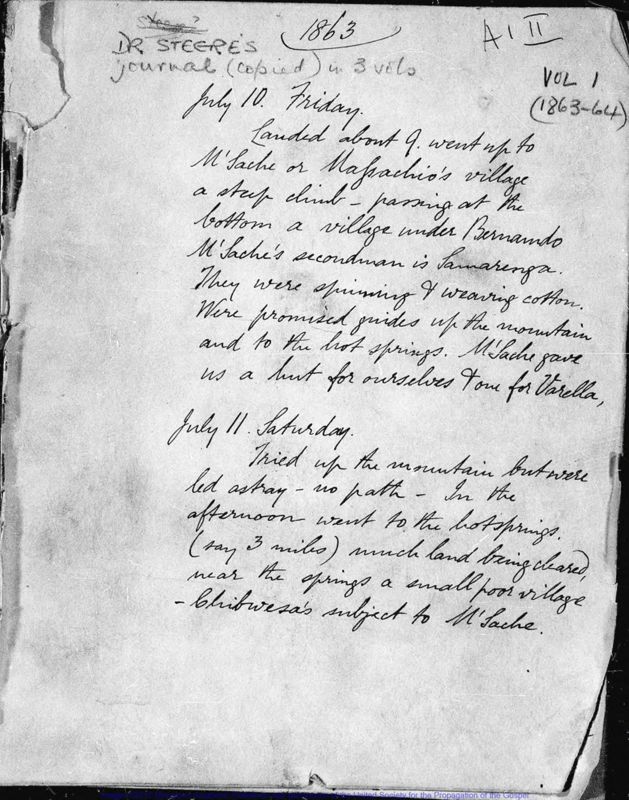 1863
A I II
DR STEERE'S
journal (copied) in 3 vols
VOL 1
(1863-64)
July 10. Friday.
Landed about 9. went up to
M'Sache or Massachio's village
a steep climb - passing at the
bottom a village under Bernando
M'Sache's secondman is Samarenga.
They were spinning & weaving cotton.
Were promised guides up the mountain
and to the hot springs. M'Sache gave
us a hut for ourselves & one for Varella,
July 11. Saturday.
Tried up the mountain but were
led astray - no path - In the
afternoon went to the hotsprings.
(say 3 miles) much land being cleared,
near the springs a small poor village
- Chibwesa's subject to M'Sache.
United Society for the Propagation of the Gospel